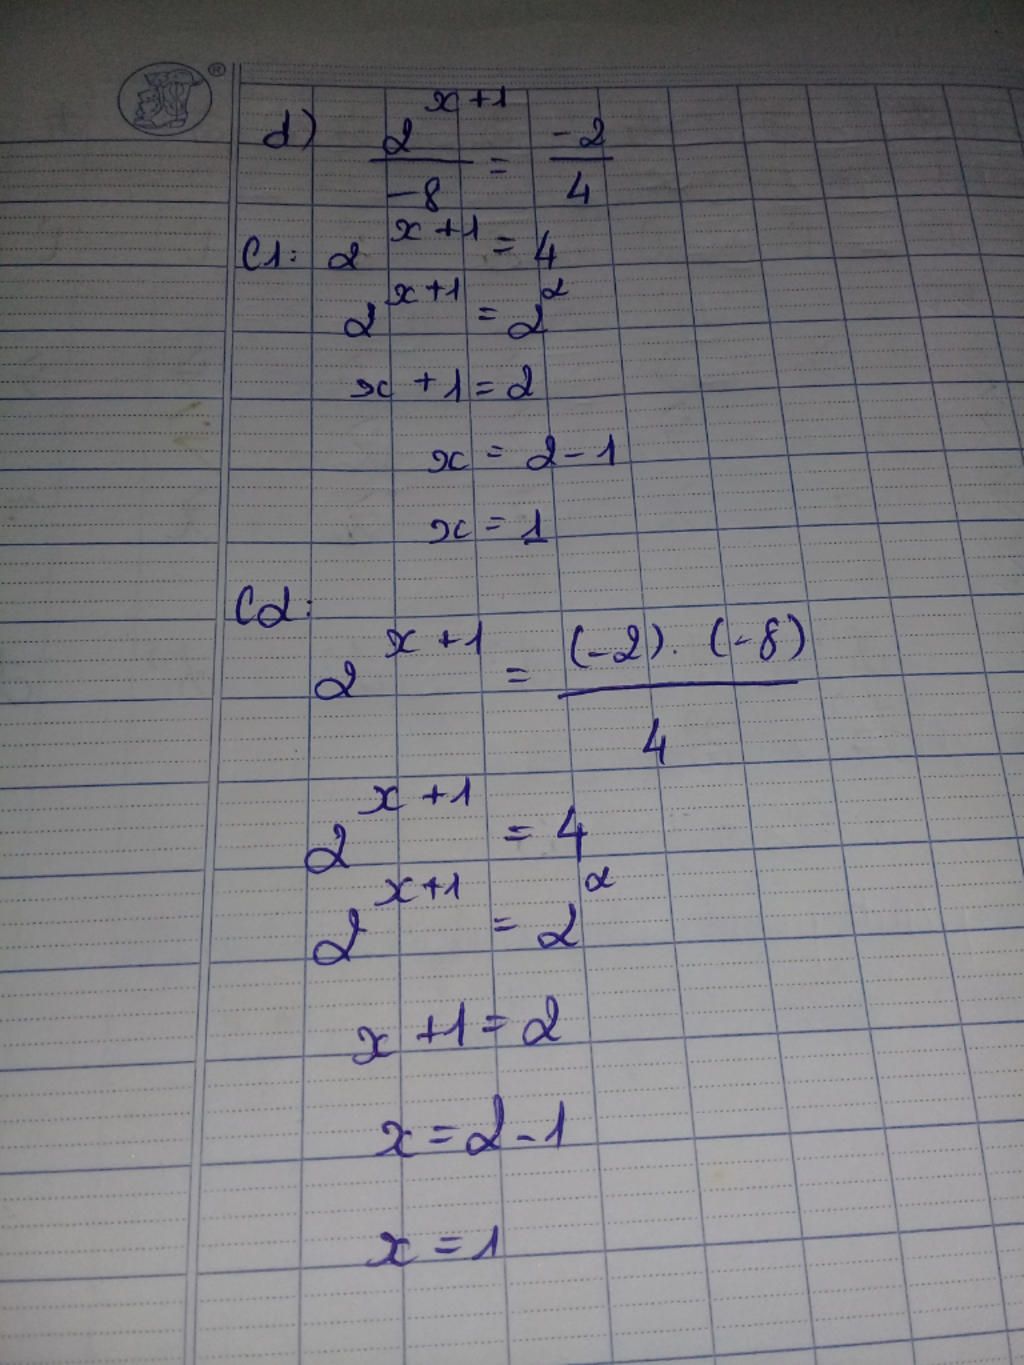 ®
d) 2^{x+1}/-8 = -2/4
C1: 2^{x+1} = 4
2^{x+1} = 2^2
x + 1 = 2
x = 2 - 1
x = 1
C2:
2^{x+1} = (-2). (-8)/4
2^{x+1} = 4
2^{x+1} = 2^2
x + 1 = 2
x = 2 - 1
x = 1